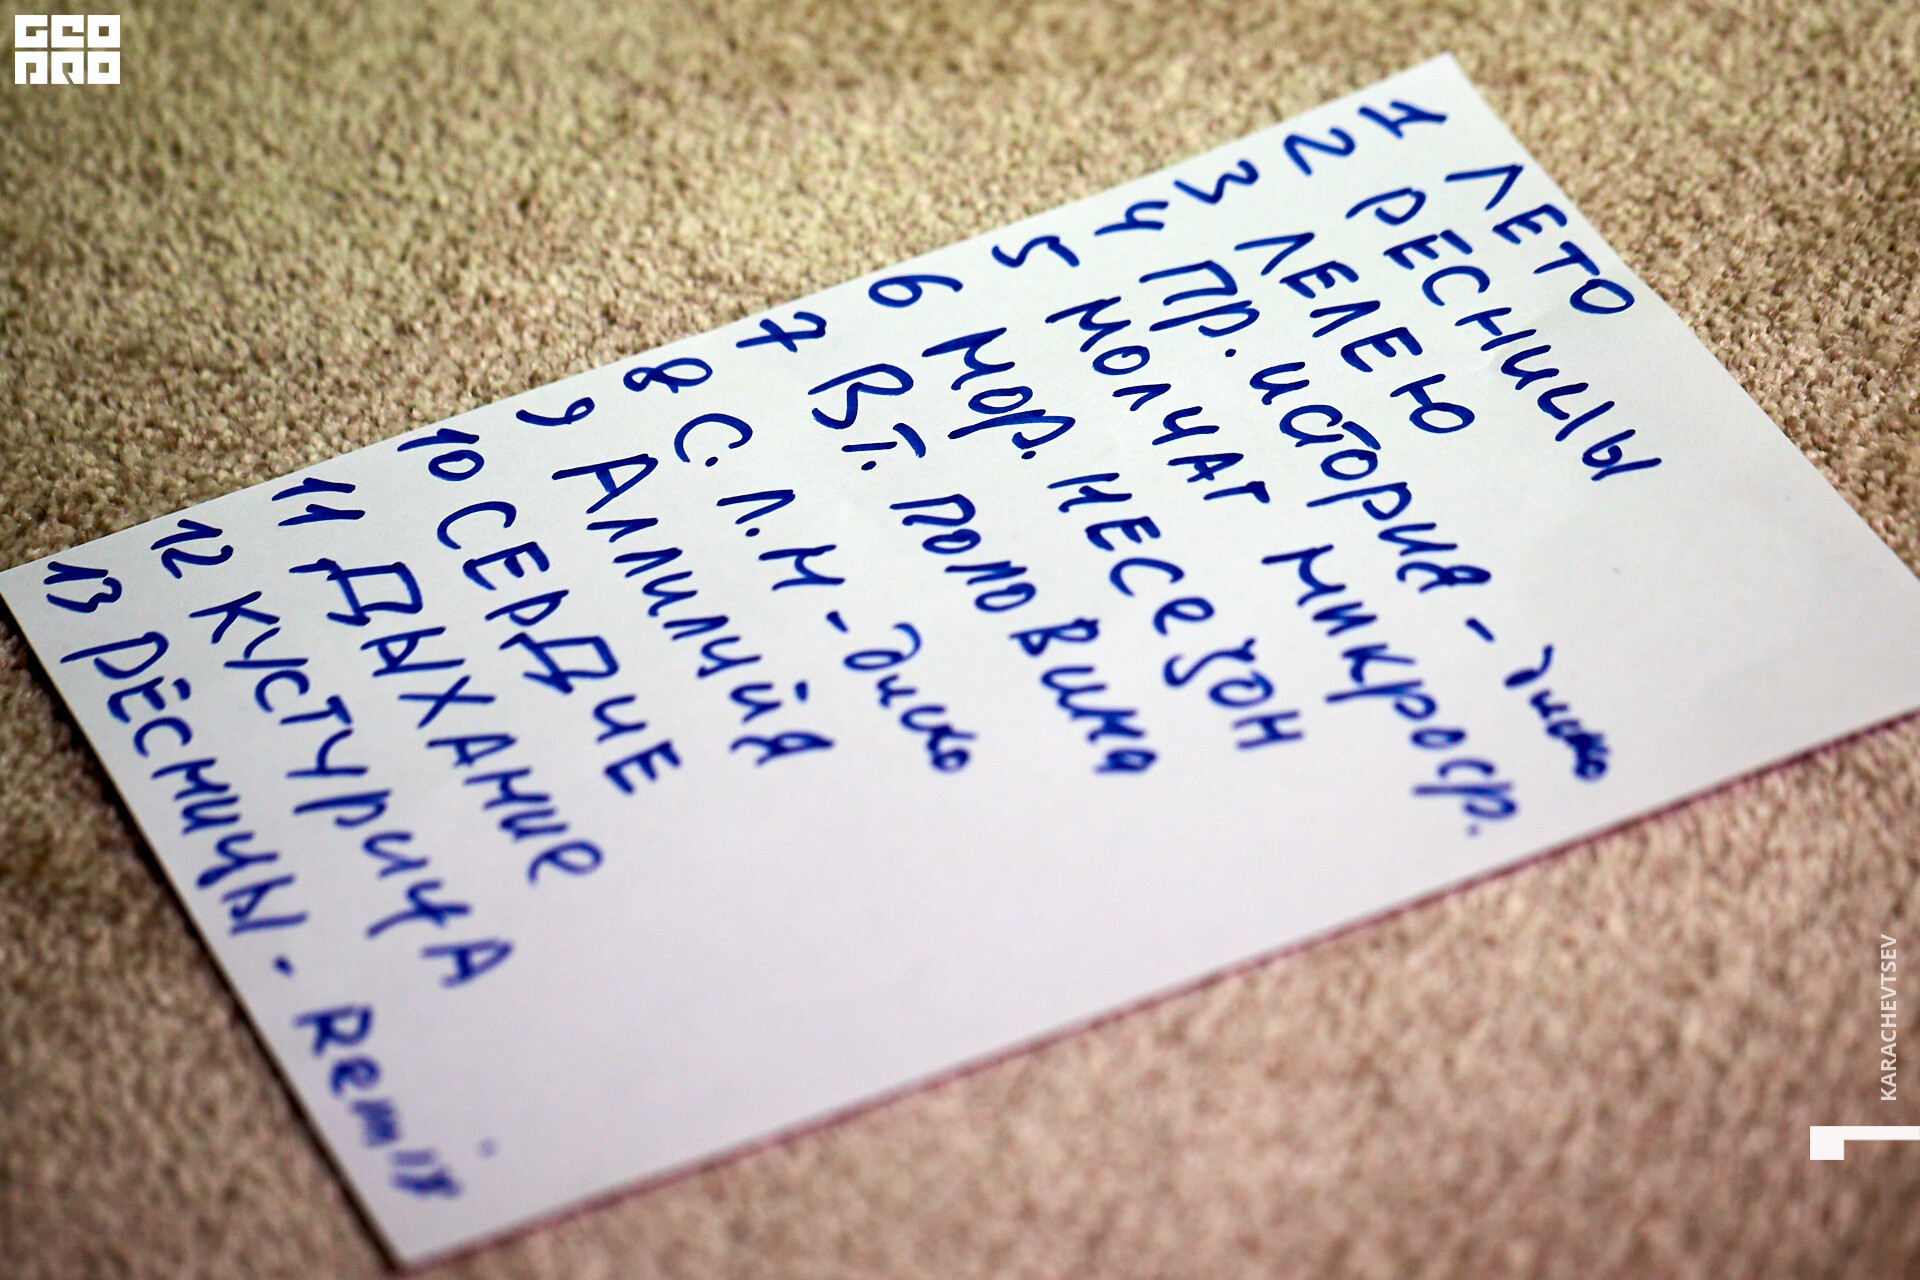 GEO
PRO
1 ЛЕТО
2 РЕСНИЦЫ
3 ЛЕЛЕЮ
4 ПР. ИСТОРИЯ - диско
5 МОЛЧАТ МИКРОСР.
6 МОР. НЕСЕЗОН
7 ВТ. ПОЛОВИНА
8 С. Л. Н - диско
9 АЛЛИЛУЙЯ
10 СЕРДЦЕ
11 ДЫХАНИЕ
12 КУСТУРИЦА
13 РЕСНИЦЫ - Remix
KARACHEVTSEV